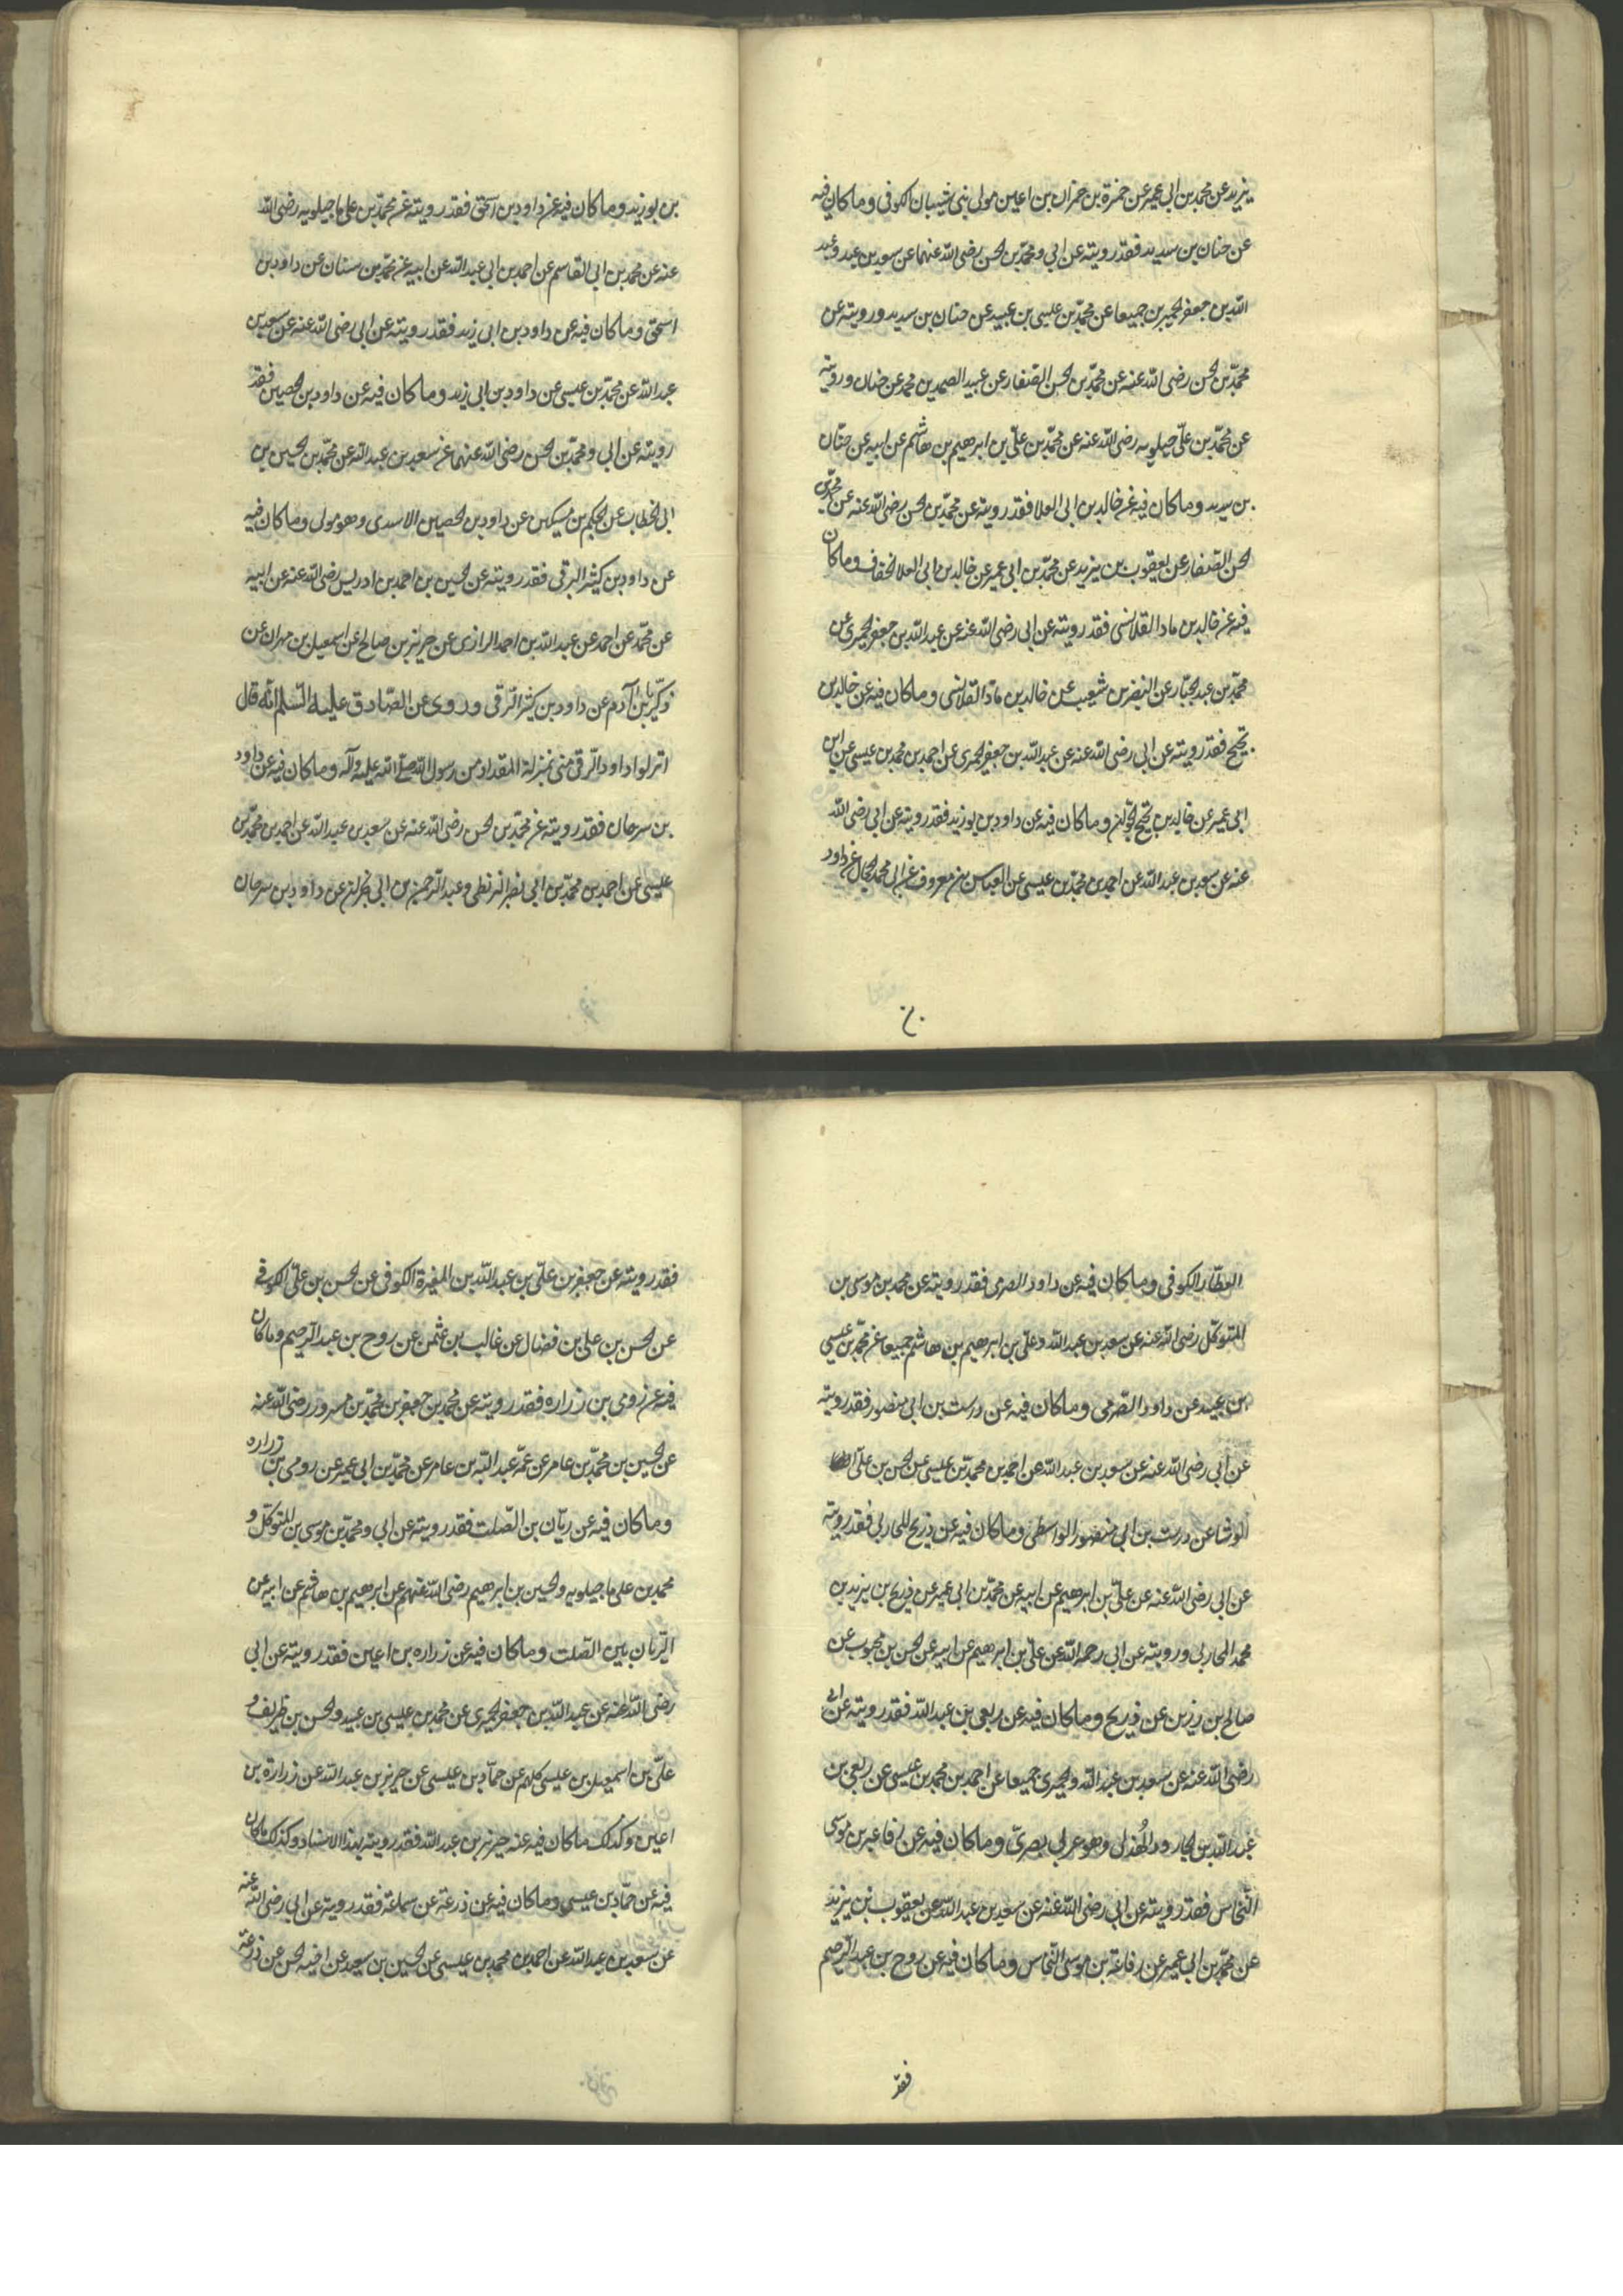 يزيد عن محمد بن ابي عمير عن حمزة بن حمران بن اعين مولى بني شيبان الكوفى وما كان فيه
عن حنان بن سدير فقد رويته عن ابي ومحمد بن الحسن رضى الله عنهما عن سعد بن عبد وعبد
الله بن جعفر الحميرى جميعا عن محمد بن عيسى بن عبيد عن حنان بن سدير ورويته عن
محمد بن الحسن رضى الله عنه عن محمد بن الحسن الصفار عن عبد الصمد بن محمد عن حنان ورويته
عن محمد بن على ماجيلويه رضى الله عنه عن محمد بن على بن ابرهيم بن هاشم عن ابيه عن حنان
بن سدير وما كان فيه عن خالد بن ابى العلا فقد رويته عن محمد بن الحسن رضى الله عنه عن محمد بن
الحسن الصفار عن يعقوب بن يزيد عن محمد بن ابى عمير عن خالد بن ابى العلا الخفاف وما كان
فيه عن خالد بن ماد القلانسى فقد رويته عن ابى رضى الله عنه عن عبد الله بن جعفر الحميرى عن
محمد بن عبد الجبار عن النضر بن شعيب عن خالد بن ماد القلانسى وما كان فيه عن خالد بن
نجيح فقد رويته عن ابى رضى الله عنه عن عبد الله بن جعفر الحميرى عن احمد بن محمد بن عيسى عن ابن
ابى عمير عن خالد بن نجيح الجوان وما كان فيه عن داود بن بوزيد فقد رويته عن ابى رضى الله
عنه عن سعد بن عبد الله عن احمد بن محمد بن عيسى عن العباس بن معروف عن ابى محمد الحجال عن داود
بن
بن بوزيد وما كان فيه عن داود بن اسحق فقد رويته عن محمد بن على ماجيلويه رضى الله
عنه عن محمد بن ابى القاسم عن احمد بن ابى عبد الله عن ابيه عن محمد بن سنان عن داود بن
اسحق وما كان فيه عن داود بن ابى زيد فقد رويته عن ابى رضى الله عنه عن سعد بن
عبد الله عن محمد بن عيسى عن داود بن ابى زيد وما كان فيه عن داود بن الحصين فقد
رويته عن ابى ومحمد بن الحسن رضى الله عنهما عن سعد بن عبد الله عن محمد بن الحسين بن
ابى الخطاب عن الحكم بن مسكين عن داود بن الحصين الاسدى وهو مولى وما كان فيه
عن داود بن كثير الرقى فقد رويته عن الحسين بن احمد بن ادريس رضى الله عنه عن ابيه
عن محمد عن احمد عن عبد الله بن احمد الرازى عن حريز بن صالح عن اسمعيل بن مهران عن
زكريا بن آدم عن داود بن كثير الرقى وروى عن الصادق عليه السلم انه قال
انزلوا داود الرقى منى بمنزلة المقداد من رسول الله صلى الله عليه وآله وما كان فيه عن داود
بن سرحان فقد رويته عن محمد بن الحسن رضى الله عنه عن سعد بن عبد الله عن احمد بن محمد بن
عيسى عن احمد بن محمد بن ابى نصر البزنطى وعبد الرحمن بن ابى نجران عن داود بن سرحان
العطار الكوفى وما كان فيه عن داود الصرمى فقد رويته عن محمد بن موسى بن
المتوكل رضى الله عنه عن سعد بن عبد الله وعلى بن ابرهيم بن هاشم جميعا عن محمد بن عيسى
بن عبيد عن داود الصرمى وما كان فيه عن درست بن ابى منصور فقد رويته
عن ابي رضى الله عنه عن سعد بن عبد الله عن احمد بن محمد بن عيسى عن الحسن بن على
الوشا عن درست بن ابى منصور الواسطى وما كان فيه عن ذريح المحاربى فقد رويته
عن ابى رضى الله عنه عن على بن ابرهيم عن ابيه عن محمد بن ابى عمير عن ذريح بن يزيد بن
محمد المحاربى ورويته عن ابى رحمه الله عن على بن ابرهيم عن ابيه عن الحسن بن محبوب عن
صالح بن رزين عن ذريح وما كان فيه عن ربعى بن عبد الله فقد رويته عن ابى
رضى الله عنه عن سعد بن عبد الله والحميرى جميعا عن احمد بن محمد بن عيسى عن ربعى بن
عبد الله بن الجارود الهذلى وهو عربى بصرى وما كان فيه عن رفاعه بن موسى
النخاس فقد رويته عن ابى رضى الله عنه عن سعد بن عبد الله عن يعقوب بن يزيد
عن محمد بن ابى عمير عن رفاعة بن موسى النخاس وما كان فيه عن روح بن عبد الرحيم
فقد
فقد رويته عن جعفر بن على بن عبد الله بن المغيرة الكوفى عن الحسن بن على الكوفى
عن الحسن بن على بن فضال عن غالب بن عثمن عن روح بن عبد الرحيم وما كان
فيه عن رومى بن زراره فقد رويته عن محمد بن جعفر بن محمد بن مسرور رضى الله عنه
عن الحسين بن محمد بن عامر عن عمه عبد الله بن عامر عن محمد بن ابى عمير عن رومى بن زراره
وما كان فيه عن ريان بن الصلت فقد رويته عن ابى ومحمد بن موسى بن المتوكل و
محمد بن على ماجيلويه والحسين بن ابرهيم رضى الله عنهم عن ابرهيم بن هاشم عن ابيه عن
الريان بن الصلت وما كان فيه عن زراره بن اعين فقد رويته عن ابى
رضى الله عنه عن عبد الله بن جعفر الحميرى عن محمد بن عيسى بن عبيد والحسن بن ظريف و
على بن اسمعيل بن عيسى كلهم عن حماد بن عيسى عن حريز بن عبد الله عن زرارة بن
اعين وكذلك ما كان فيه عنه حريز بن عبد الله فقد رويته بهذا الاسناد وكذلك ما كان
فيه عن حماد بن عيسى وما كان فيه عن زرعة عن سماعة فقد رويته عن ابى رضى الله عنه
عن سعد بن عبد الله عن احمد بن محمد بن عيسى عن الحسين بن سعيد عن اخيه الحسن عن زرعة